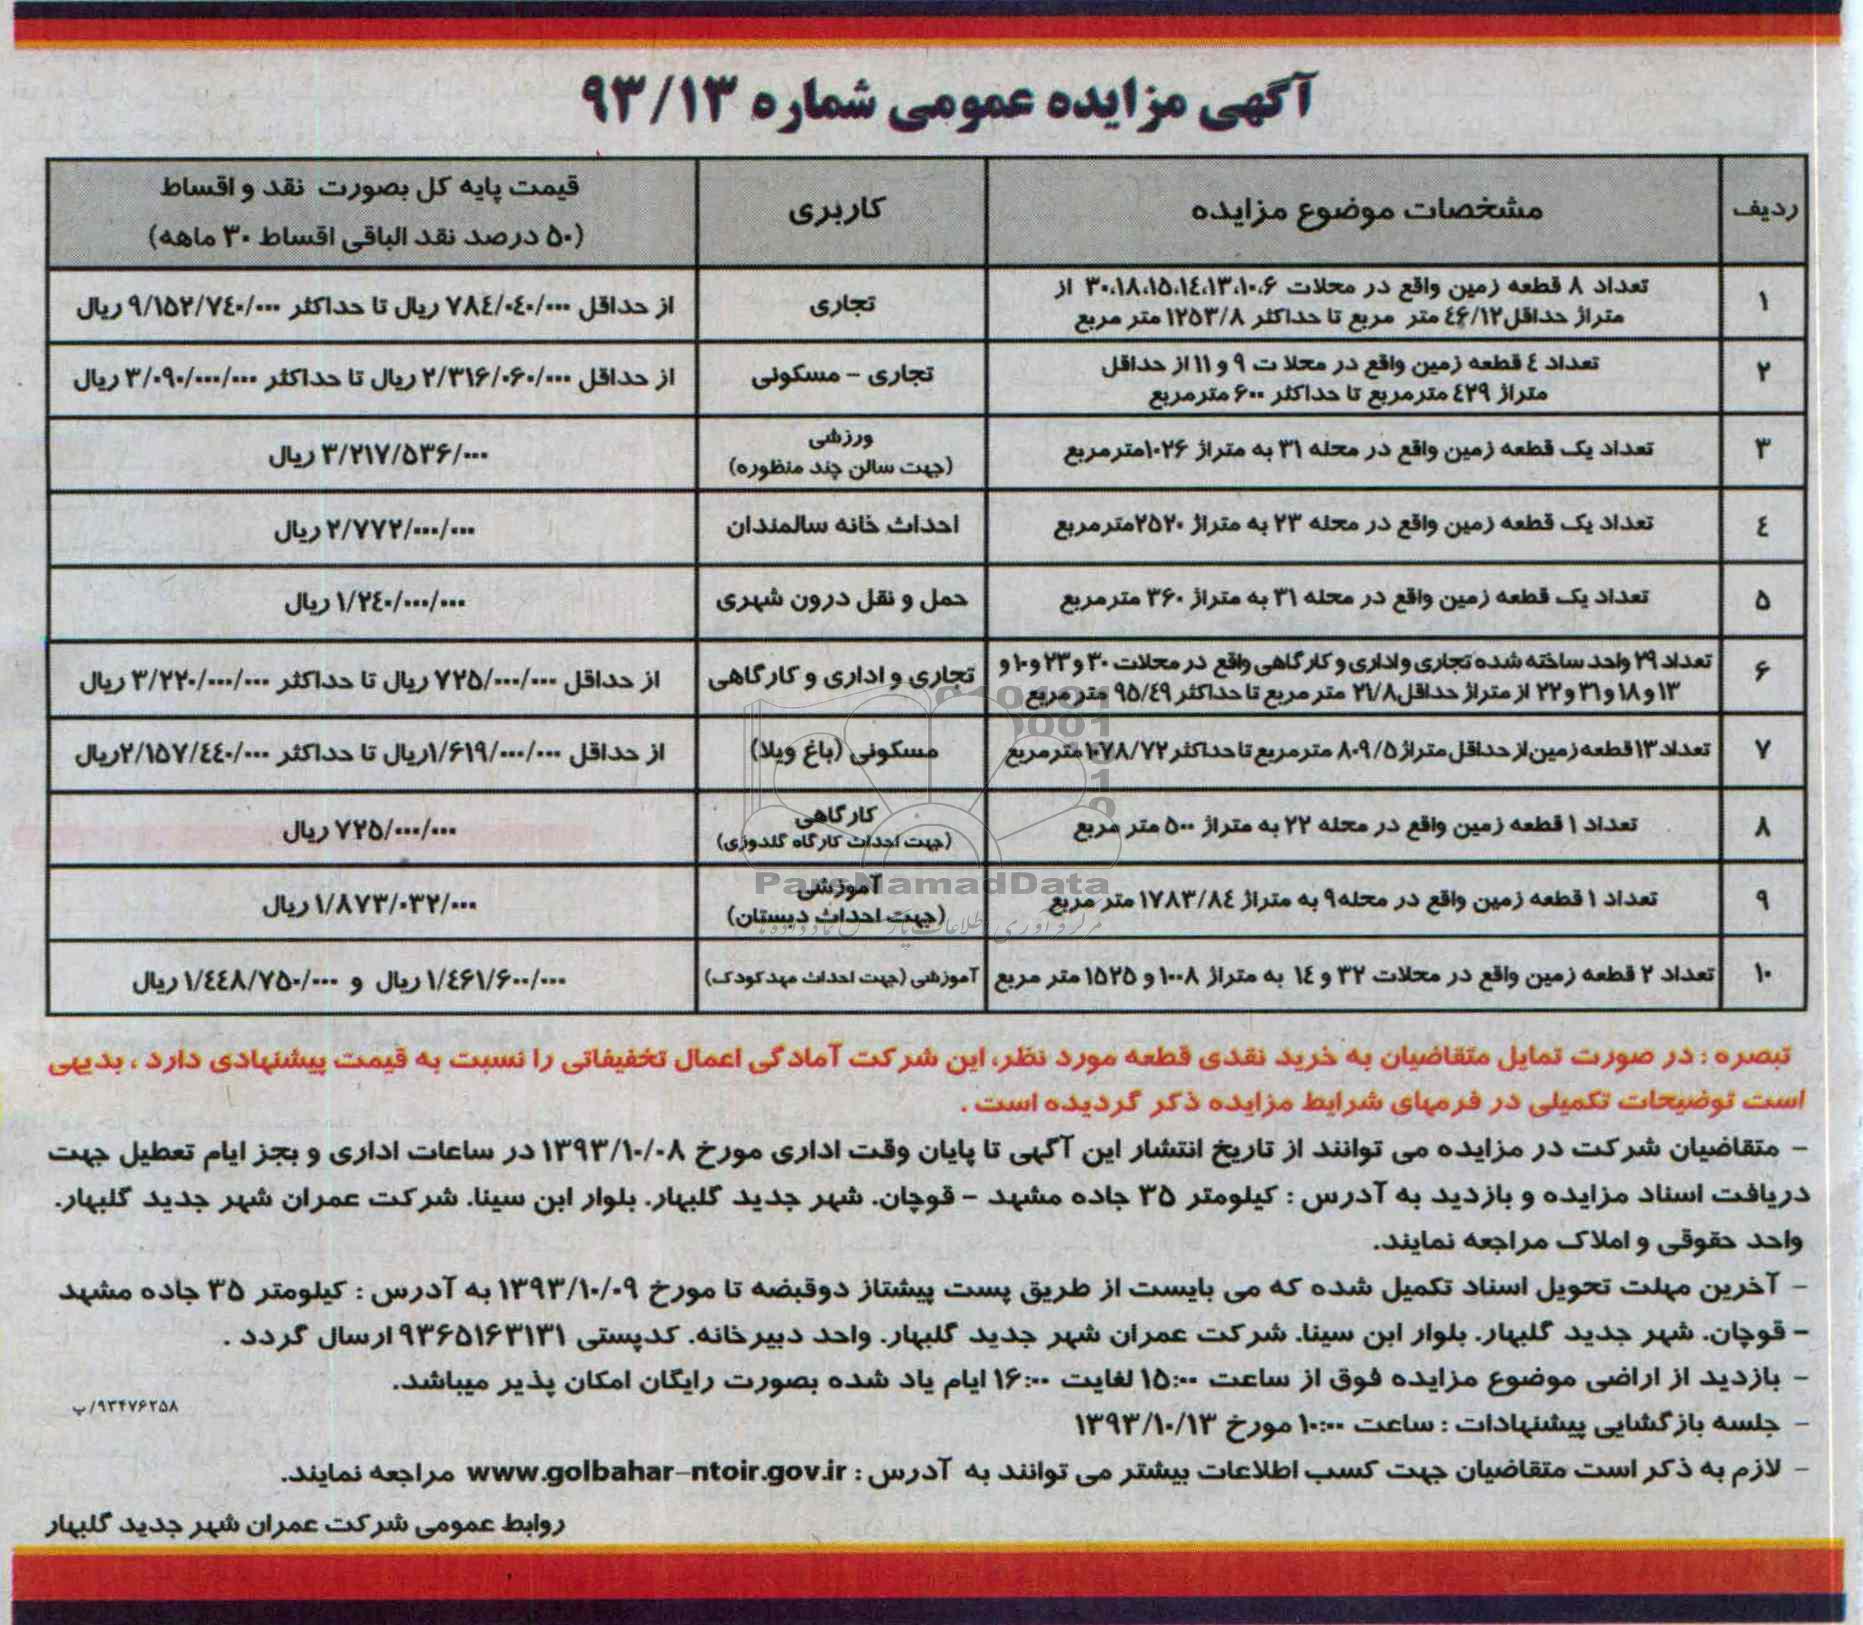 آگهی مزایده عمومی شماره ۹۳/۱۳
ردیف | مشخصات موضوع مزایده | کاربری | قیمت پایه کل بصورت نقد و اقساط
(۵۰ درصد نقد الباقی اقساط ۳۰ ماهه)
۱ | تعداد ۸ قطعه زمین واقع در محلات ۶،۱۰،۱۳،۱٤،۱۵،۱۸،۳۰ از | تجاری | از حداقل ۷۸٤/۰٤۰/۰۰۰ ریال تا حداکثر ۹/۱۵۲/۷٤۰/۰۰۰ ریال
متراژ حداقل ٤۶/۱۲ متر مربع تا حداکثر ۱۲۵۳/۸ متر مربع
۲ | تعداد ٤ قطعه زمین واقع در محلا ت ۹ و ۱۱ از حداقل | تجاری - مسکونی | از حداقل ۲/۳۱۶/۰۶۰/۰۰۰ ریال تا حداکثر ۳/۰۹۰/۰۰۰/۰۰۰ ریال
متراژ ٤۲۹ مترمربع تا حداکثر ۶۰۰ مترمربع
۳ | تعداد یک قطعه زمین واقع در محله ۳۱ به متراژ ۱۰۲۶مترمربع | ورزشی | ۳/۲۱۷/۵۳۶/۰۰۰ ریال
(جهت سالن چند منظوره)
٤ | تعداد یک قطعه زمین واقع در محله ۲۳ به متراژ ۲۵۲۰مترمربع | احداث خانه سالمندان | ۲/۷۷۲/۰۰۰/۰۰۰ ریال
۵ | تعداد یک قطعه زمین واقع در محله ۳۱ به متراژ ۳۶۰ مترمربع | حمل و نقل درون شهری | ۱/۲٤۰/۰۰۰/۰۰۰ ریال
۶ | تعداد ۲۹ واحد ساخته شده تجاری و اداری و کارگاهی واقع در محلات ۳۰ و ۲۳ و ۱۰ و | تجاری و اداری و کارگاهی | از حداقل ۷۲۵/۰۰۰/۰۰۰ ریال تا حداکثر ۳/۲۲۰/۰۰۰/۰۰۰ ریال
۱۳ و ۱۸ و ۳۱ و ۲۲ از متراژ حداقل ۲۱/۸ متر مربع تا حداکثر ۹۵/٤۹ متر مربع
۷ | تعداد ۱۳ قطعه زمین از حداقل متراژ ۸۰۹/۵ مترمربع تا حداکثر ۱۰۷۸/۷۲ مترمربع | مسکونی (باغ ویلا) | از حداقل ۱/۶۱۹/۰۰۰/۰۰۰ریال تا حداکثر ۲/۱۵۷/٤٤۰/۰۰۰ریال
۸ | تعداد ۱ قطعه زمین واقع در محله ۲۲ به متراژ ۵۰۰ متر مربع | کارگاهی | ۷۲۵/۰۰۰/۰۰۰ ریال
(جهت احداث کارگاه گلدوزی)
۹ | تعداد ۱ قطعه زمین واقع در محله۹ به متراژ ۱۷۸۳/۸٤ متر مربع | آموزشی | ۱/۸۷۳/۰۳۲/۰۰۰ ریال
(جهت احداث دبستان)
۱۰ | تعداد ۲ قطعه زمین واقع در محلات ۳۲ و ۱٤ به متراژ ۱۰۰۸ و ۱۵۲۵ متر مربع | آموزشی (جهت احداث مهدکودک) | ۱/٤۶۱/۶۰۰/۰۰۰ ریال و ۱/٤٤۸/۷۵۰/۰۰۰ ریال
ParsNamadData
تبصره : در صورت تمایل متقاضیان به خرید نقدی قطعه مورد نظر، این شرکت آمادگی اعمال تخفیفاتی را نسبت به قیمت پیشنهادی دارد ، بدیهی
است توضیحات تکمیلی در فرمهای شرایط مزایده ذکر گردیده است .
- متقاضیان شرکت در مزایده می توانند از تاریخ انتشار این آگهی تا پایان وقت اداری مورخ ۱۳۹۳/۱۰/۰۸ در ساعات اداری و بجز ایام تعطیل جهت
دریافت اسناد مزایده و بازدید به آدرس : کیلومتر ۳۵ جاده مشهد - قوچان. شهر جدید گلبهار. بلوار ابن سینا. شرکت عمران شهر جدید گلبهار.
واحد حقوقی و املاک مراجعه نمایند.
- آخرین مهلت تحویل اسناد تکمیل شده که می بایست از طریق پست پیشتاز دوقبضه تا مورخ ۱۳۹۳/۱۰/۰۹ به آدرس : کیلومتر ۳۵ جاده مشهد
- قوچان. شهر جدید گلبهار. بلوار ابن سینا. شرکت عمران شهر جدید گلبهار. واحد دبیرخانه. کدپستی ۹۳۶۵۱۶۳۱۳۱ ارسال گردد .
- بازدید از اراضی موضوع مزایده فوق از ساعت ۱۵:۰۰ لغایت ۱۶:۰۰ ایام یاد شده بصورت رایگان امکان پذیر میباشد.
۹۳۴۷۶۲۵۸/پ
- جلسه بازگشایی پیشنهادات : ساعت ۱۰:۰۰ مورخ ۱۳۹۳/۱۰/۱۳
- لازم به ذکر است متقاضیان جهت کسب اطلاعات بیشتر می توانند به آدرس : www.golbahar-ntoir.gov.ir مراجعه نمایند.
روابط عمومی شرکت عمران شهر جدید گلبهار